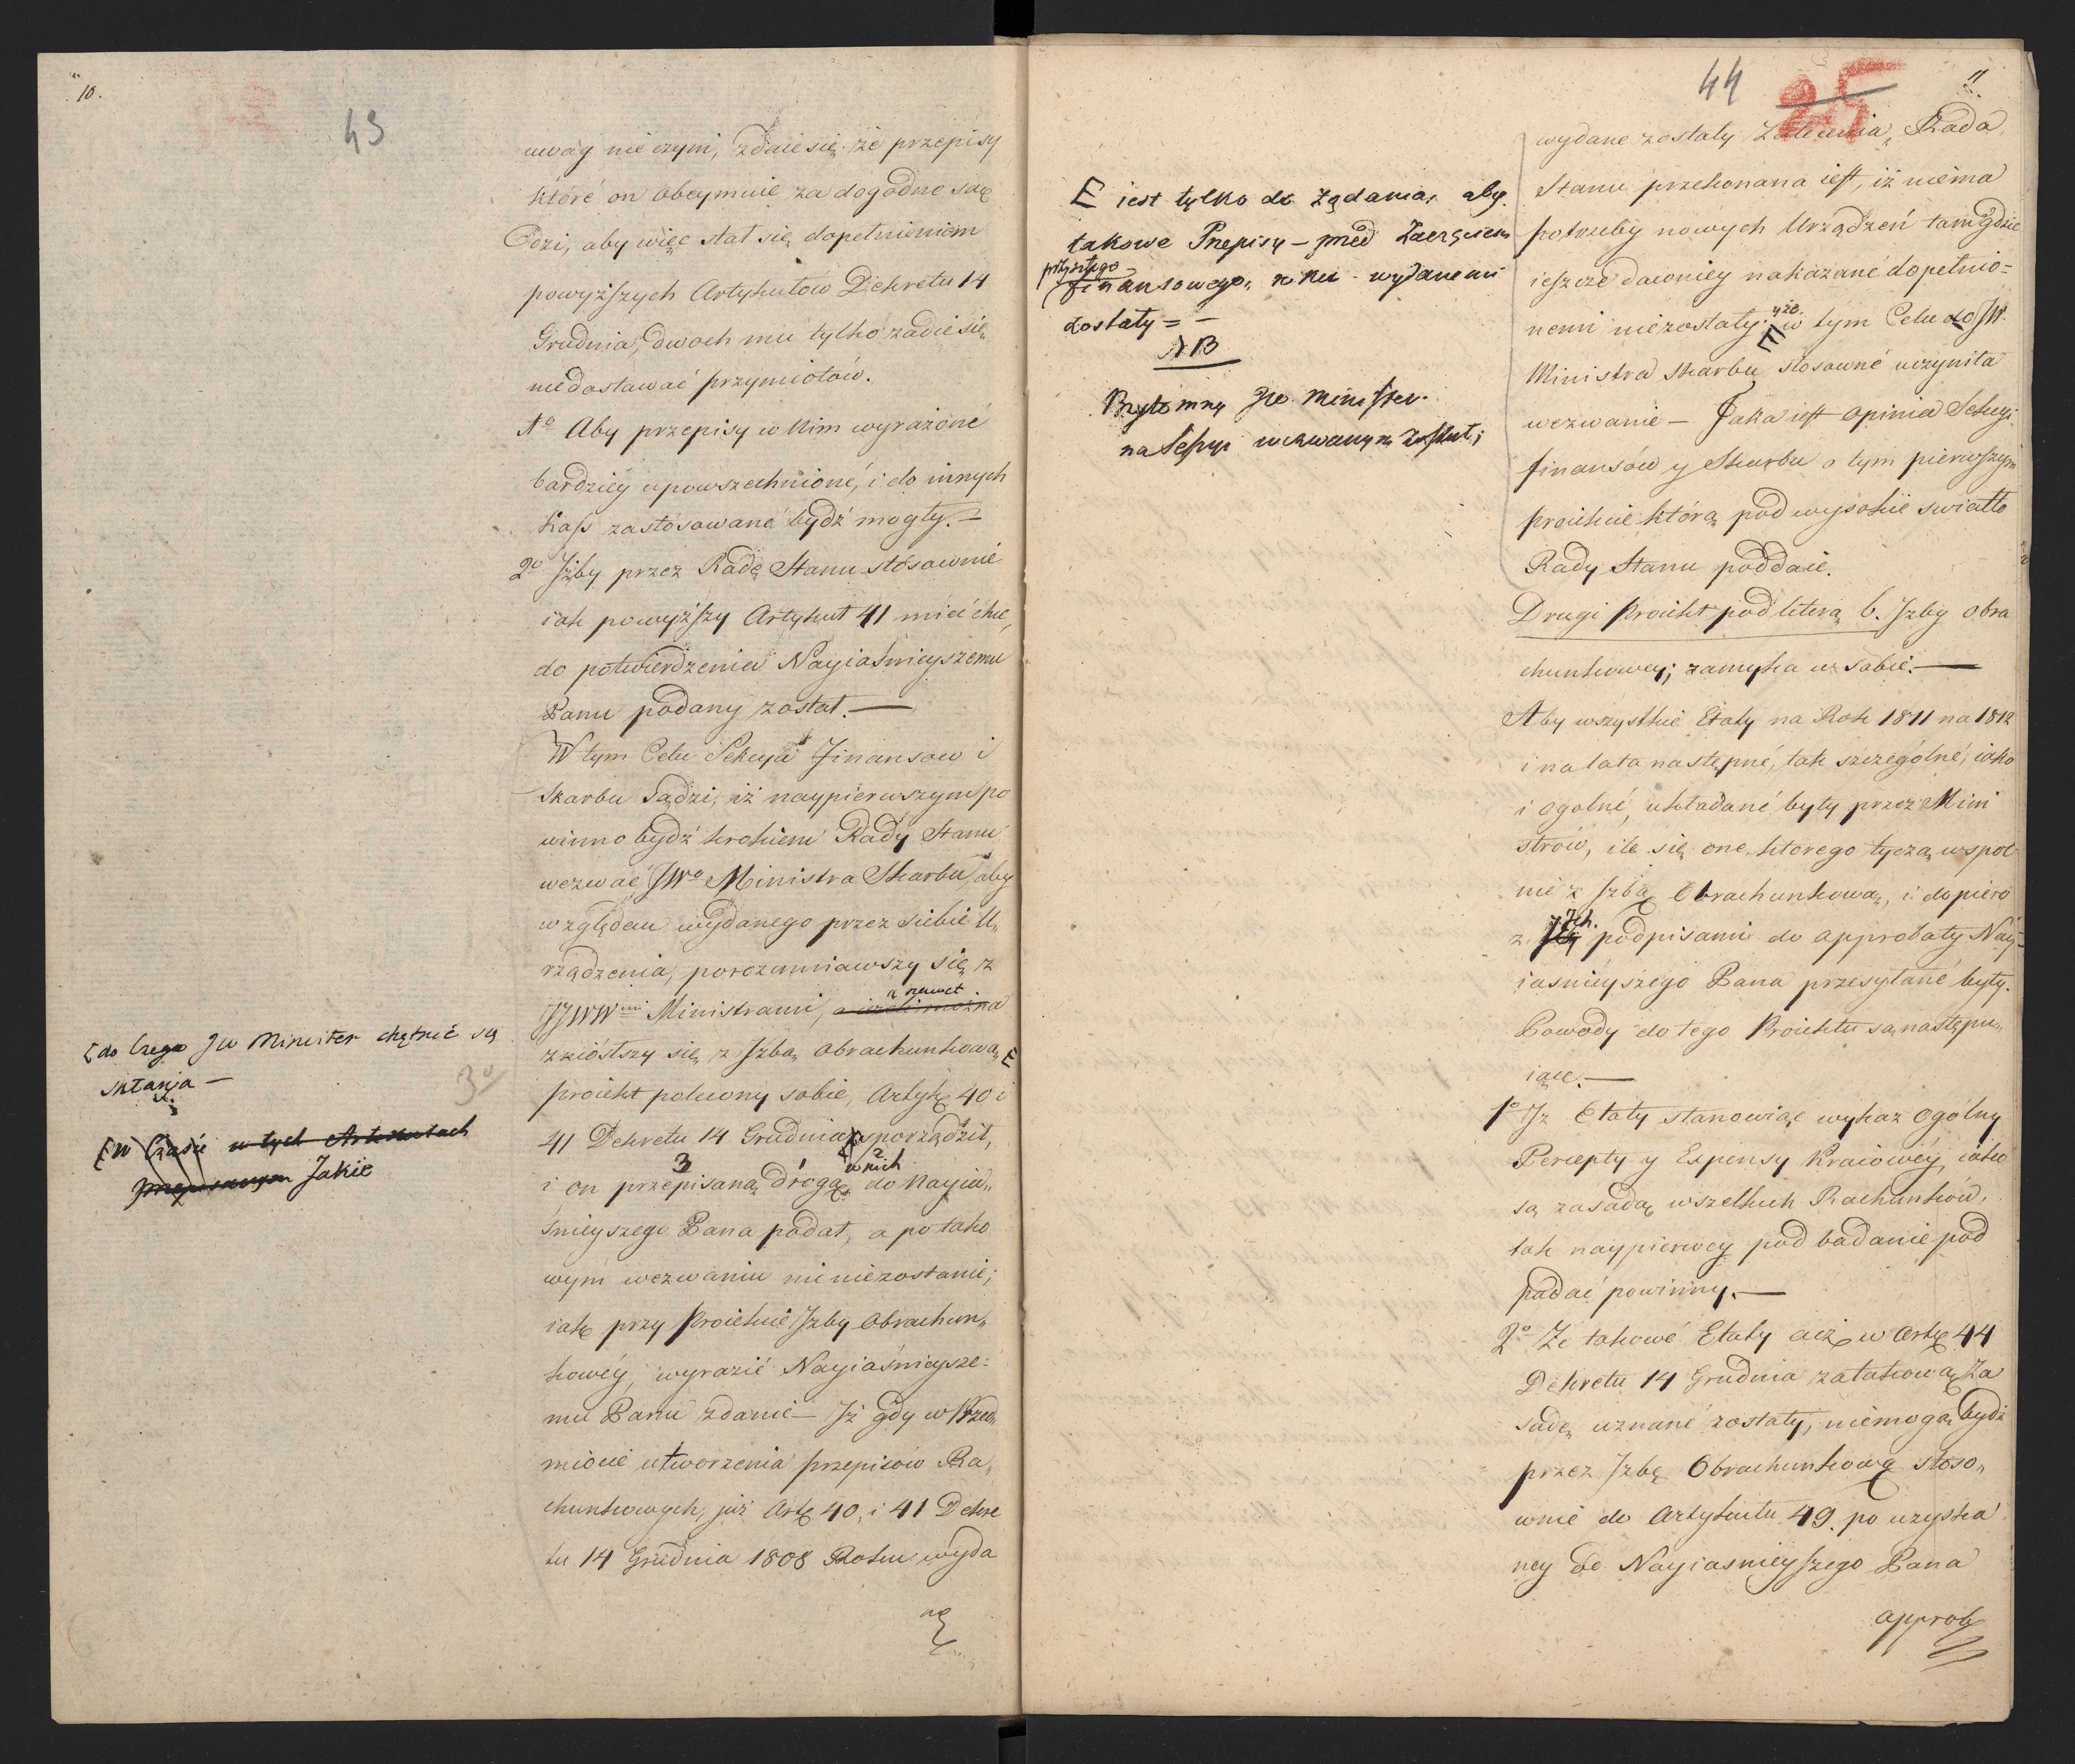 10.
43
uwag nie czyni, zdaie się że przepisy
które on obeymuie za dogodne są„
dzi, aby więc stał się dopełnieniem
powyższych Artykułow Dekretu 14
Grudnia, dwoch mu tylko zdaie się
niedostawać przymiotów.
1º Aby przepisy w nim wyrażoné
bardziey upowszechnioné, i do innych
Kass zastósowané bydź mogły.—
2º Jżby przez Radę Stanu stósownie
iak powyższy Artykuł 41 mieć chce,
do potwierdzenia Nayiaśnieyszemu
Panu podany został.—
W tym Celu Sekcya Finansow i
Skarbu Sądzi, iż naypierwszym po
winno bydź krokiem Rady Stanu
wezwać JWº Ministra Skarbu, aby
względem wydanego przez siebie U„
rządzenia, porozumiawszy się z
JJWW mi Ministrami, a nawet
zniósłszy się z Jzbą Obrachunkową E
proiekt polecony sobie, Artyk 40 i
41 Dekretu 14 Grudnia sporządził,
3 w nich
i on przepisaną drogą do Nayia„
śnieyszego Pana podał, a po tako
wym wezwaniu nie niezostanie;
iak przy Proiekcie Jzby Obrachun„
kowéy, wyrazić Nayiaśnieysze=
mu Panu zdanie— Jż gdy w Przed„
miocie utworzenia przepisów Ra„
chunkowych, już Art 40, i 41 Dekre
tu 14 Grudnia 1808 Roku wyda
ne
E do Czego JW Minister chętnie się
skłania —
3º
w Czasie w tych Artykułach
przepisanym Jakie
44
25
11.
wydane zostały Zalecenia, Rada
Stanu przekonana iest, iż niéma
potrzeby nowych Urządzeń tam gdzie
ieszcze dawniey nakazané dopełnio=
nemi niezostały. E w tym Celu do JW.
Ministra Skarbu stosowné uczyniła
wezwanie — Jaka iest opinia Sekcyi
finansów y Skarbu o tym pierwszym
proiekcie którą pod wysokie swiatło
Rady Stanu poddaie.
Drugi Proiekt pod literą b. Jzby Obra
chunkowey; zamyka w sobie.—
Aby wszystkie Etaty na Rok 1811 na 1812
i na lata następné, tak szczególné, iako
i ogolné, układané były przez Mini
strów, ile się one, ktorego tyczą wspol
nie z Jzbą Obrachunkową, i dopiero
z Jch podpisami do approbaty Nay=
iaśnieyszego Pana przesyłané były.
Powody do tego Proiektu są następu„
iące.—
1º Jż Etaty stanowiąc wykaz Ogólny
Percepty y Expensy Kraiowéy, iako
są zasadą wszelkich Rachunków,
tak naypierwey pod badanie pod
padać powinny.—
2º Że takowé Etaty acz w Art 44
Dekretu 14 Grudnia za takową Za
sadę uznané zostały, niémogą bydź
przez Jzbę Obrachunkową stoso„
wnie do Artykułu 49. po uzyska
ney od Nayiasnieyszego Pana
approb
E iest tylko do żądania, aby
takowe Przepisy — przed Zaczęciem
przyszłego
finansowego roku wydanemi
zostały = —
NB
Bytomny JW. Minister
na Sessyi wezwanym został;